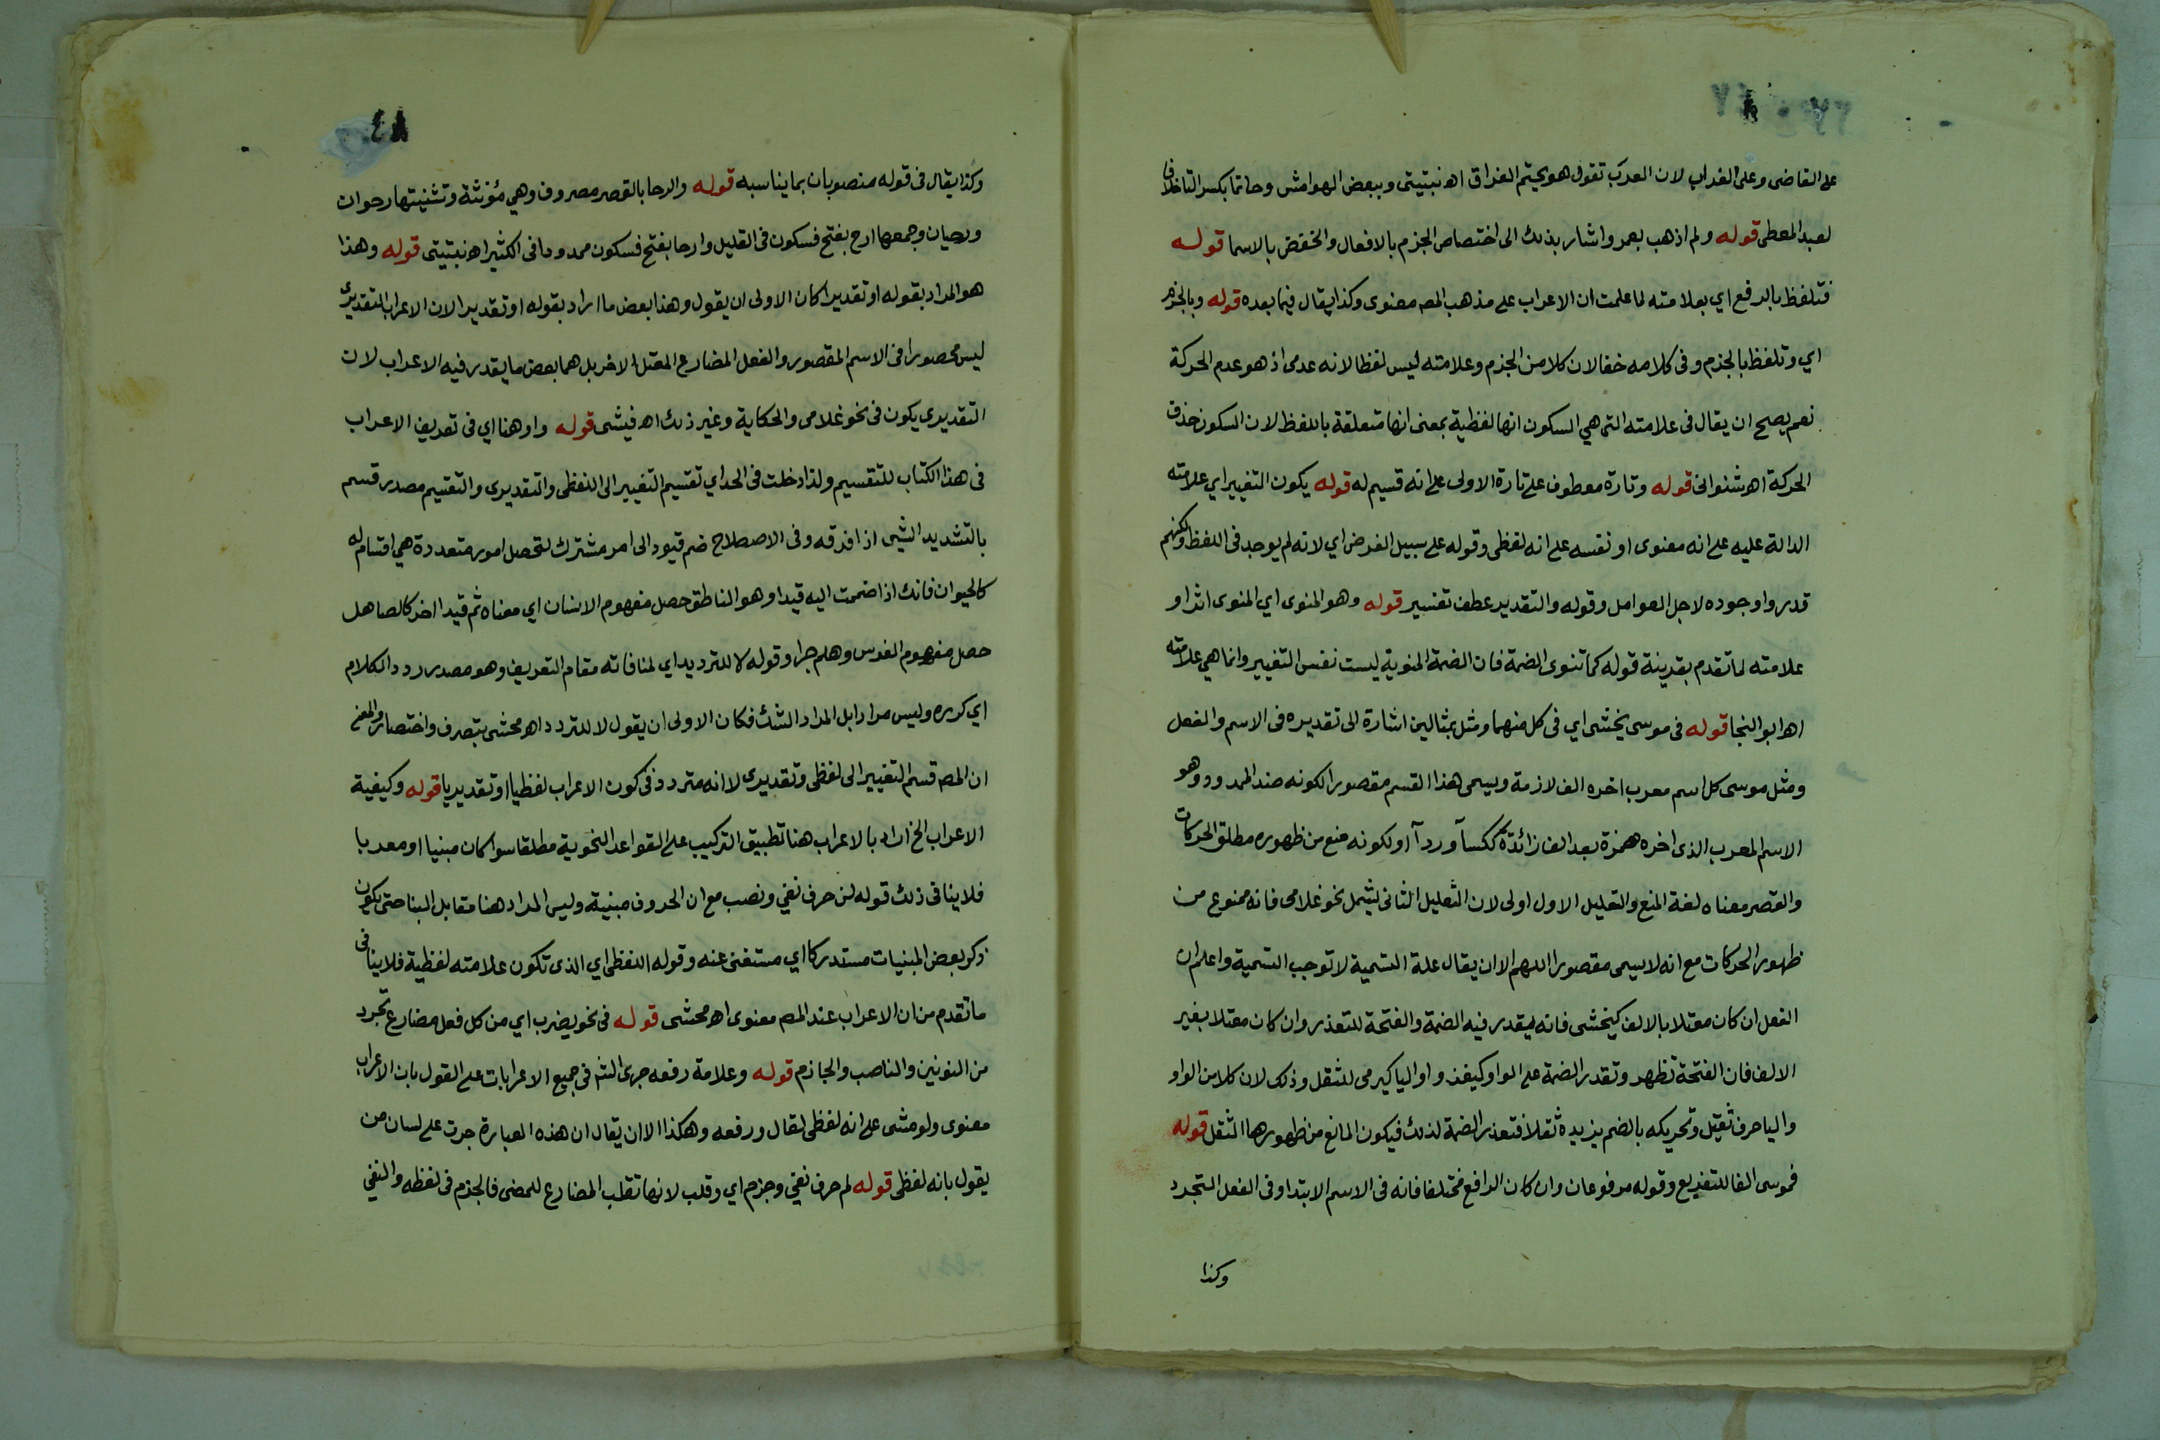 على القاضى وعلى الغداب لان العرب تقول هو يحيتم الفراق اه نبتيتى وببعض الهوامش وحاتما بكسر التا خلافا
لعبد المعطى قوله ولم اذهب بعمرو اشار بذلك الى اختصاص الجزم بالافعال والخفض بالاسما قوله
فتلفظ بالرفع اي بعلامته لما علمت ان الاعراب على مذهب المص معنوى وكذا يقال فيما بعده قوله وبالجزم
اي وتلفظ بالجزم وفى كلامه خفا لان كلا من الجزم وعلامته ليس لفظا لانه عدمى اذ هو عدم الحركة
نعم يصح ان يقال فى علامته التى هي السكون انها لفظية بمعنى انها متعلقة باللفظ لان السكون حذف
الحركة اه شنوانى قوله وتارة معطوف على تارة الاولى على انه قسيم له قوله يكون التغيير اي علامته
الدالة عليه على انه معنوى او نفسه على انه لفظى وقوله على سبيل الفرض اي لانه لم يوجد فى اللفظ ولكنهم
قدروا وجوده لاجل العوامل وقوله والتقدير عطف تفسير قوله وهو المنوى اي المنوى اثرا و
علامته لما تقدم بقرينة قوله كما تنوى الضمة فان الضمة المنوية ليست نفس التغيير وانما هي علامته
اه ابو النجا قوله فى موسى يخشى اي فى كل منهما ومثل بمثالين اشارة الى تقديره فى الاسم والفعل
ومثل موسى كل اسم معرب اخره الف لازمة ويسمى هذا القسم مقصورا لكونه ضد الممدود وهو
الاسم المعرب الذى اخره همزة بعد الف زائدة ككسآ وردآ او لكونه منع من ظهوره مطلق الحركات
والقصر معناه لغة المنع والتعليل الاول اولى لان التعليل الثانى يشمل نحو غلامى فانه ممنوع من
ظهور الحركات مع انه لا يسمى مقصورا اللهم الا ان يقال علة التسمية لا توجب التسمية واعلم ان
الفعل ان كان معتلا بالالف كيخشى فانه يقدر فيه الضمة والفتحة للتعذر وان كان معتلا بغير
الالف فان الفتحة تظهر وتقدر الضمة على الواو كيغزو او اليا كيرمى للثقل وذلك لان كلا من الواو
واليا حرف ثقيل وتحريكه بالضم يزيده ثقلا فتعذر الضمة لذلك فيكون المانع من ظهورها الثقل قوله
فموسى الفا للتفريع وقوله مرفوعان وان كان الرافع مختلفا فانه فى الاسم الابتدا وفى الفعل التجرد
وكذا
٤٨
وكذا يقال فى قوله منصوبان بما يناسبه قوله والرحا بالقصر معروف وهي مؤنثة وتثنيتها رحوان
ورحيان وجمعها ارح بفتح فسكون فى القليل وارحا بفتح فسكون ممدودا فى الكثير اه نبتيتى قوله وهذا
هو المراد بقوله او تقديرا كان الاولى ان يقول وهذا بعض ما اراد بقوله او تقديرا لان الاعراب التقديرى
ليس محصورا فى الاسم المقصور والفعل المضارع المعتل الاخر بل هما بعض ما يقدر فيه الاعراب لان
التقديرى يكون فى نحو غلامى والحكاية وغير ذلك اه فيشى قوله واو هنا اي فى تعريف الاعراب
فى هذا الكتاب للتقسيم ولذا دخلت فى الحد اي تقسيم التغيير الى اللفظى والتقديرى والتقسيم مصدر قسم
بالتشديد الشيى اذا فرقه وفى الاصطلاح ضم قيود الى امر مشترك لتحصل امور متعددة هي اقسام له
كالحيوان فانك اذا ضممت اليه قيدا وهو الناطق حصل مفهوم الانسان اي معناه ثم قيد اخر كالصاهل
حصل مفهوم الفرس وهلم جرا وقوله لا للترديد اي لمنافاته مقام التعريف وهو مصدر ردد الكلام
اي كرره وليس مرادا بل المراد الشك فكان الاولى ان يقول لا للتردد اه محشى بتصرف واختصار والمعنى
ان المص قسم التغيير الى لفظى وتقديرى لا انه متردد فى كون الاعراب لفظيا او تقديريا قوله وكيفية
الاعراب الخ اراد بالاعراب هنا تطبيق التركيب على القواعد النحوية مطلقا سوا كان مبنيا او معربا
فلا ينافى ذلك قوله لن حرف نفي ونصب مع ان الحروف مبنية وليس المراد هنا مقابل البنا حتى يكون
ذكر بعض المبنيات مستدركا اي مستغنى عنه وقوله اللفظى اي الذى تكون علامته لفظية فلا ينافى
ما تقدم من ان الاعراب عند المص معنوى اه محشى قوله فى نحو يضرب اي من كل فعل مضارع تجرد
من النونين والناصب والجازم قوله وعلامة رفعه جرى الش فى جميع الاعرابات على القول بان الاعراب
معنوى ولو مشى على انه لفظى لقال ورفعه وهكذا الا ان يقال ان هذه العبارة جرت على لسان من
يقول بانه لفظى قوله لم حرف نفي وجزم اي وقلب لانها تقلب المضارع للمضى فالجزم فى لفظه والنفي